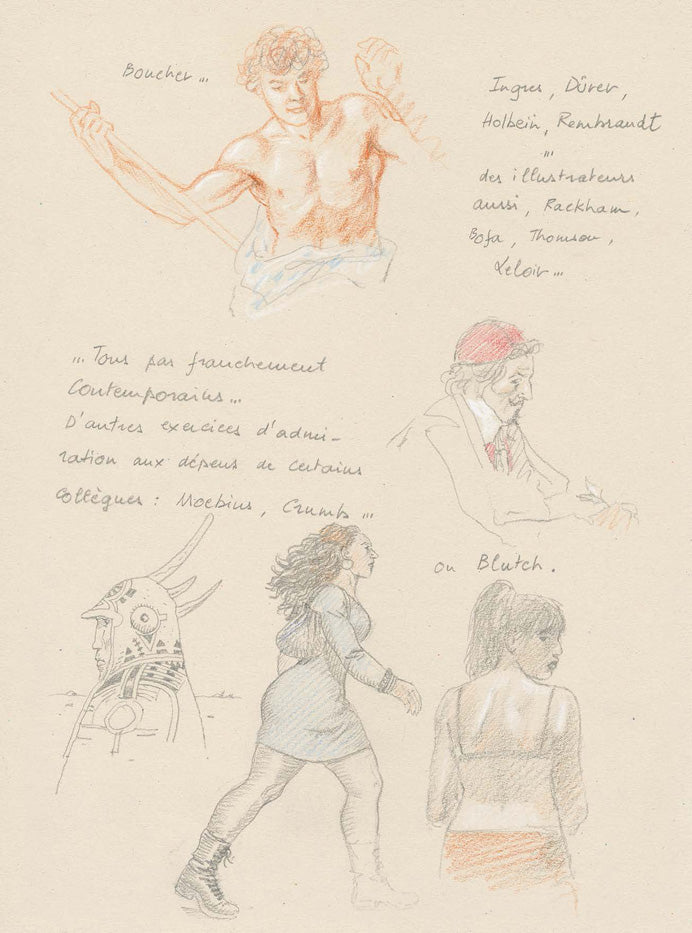 Boucher...
Ingres, Dürer,
Holbein, Rembrandt
...
des illustrateurs
aussi, Rackham,
Bofa, Thomson,
Leloir...
... Tous pas franchement
Contemporains...
D'autres exercices d'admi-
ration aux dépens de certains
Collègues : Moebius, Crumb...
ou Blutch.